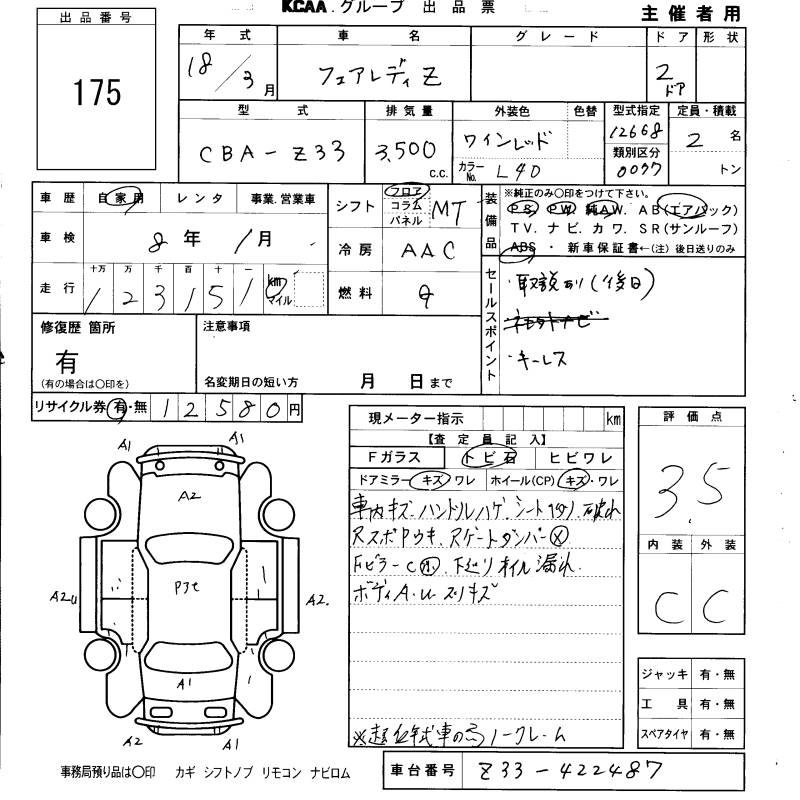 KCAA.グループ 出品票
主催者用
出品番号
175
年式 車名 グレード ドア 形状
18/3月 フェアレディZ 2ドア
型式 排気量 外装色 色替 型式指定 定員・積載
CBA-Z33 3,500 c.c. ワインレッド 12668 2名
カラーNo. L40 類別区分 0037 トン
車歴 自家用 レンタ 事業.営業車
車検 8年1月
走行 十万 万 千 百 十 一
123151 km マイル
シフト フロア コラム パネル MT
冷房 AAC
燃料 G
装備品
※純正のみ〇印をつけて下さい。
PS PW 純AW. AB(エアバック)
TV. ナビ. カワ. SR(サンルーフ)
ABS ・ 新車保証書←(注)後日送りのみ
セールスポイント
・取説あり(後日)
・キーレス
修復歴 箇所
有
(有の場合は〇印を)
注意事項
名変期日の短い方 月 日まで
リサイクル券 有・無 12580円
現メーター指示 km
【査定員記入】
Fガラス トビ石 ヒビワレ
ドアミラー キズ ワレ ホイール(CP) キズ・ワレ
車内キズ.ハンドルハゲ.シート 破れ
RスポPウキ.Rゲートダンパー×
Fピラーc 下廻りオイル漏れ.
ボディA.Uスリキズ
※超低年式車の為ノークレーム
評価点
3.5
内装 外装
C C
ジャッキ 有・無
工具 有・無
スペアタイヤ 有・無
A1 A1
A2
P3セ
A2U A2.
A1
A2 A1
事務局預り品は〇印 カギ シフトノブ リモコン ナビロム
車台番号 Z33-422487